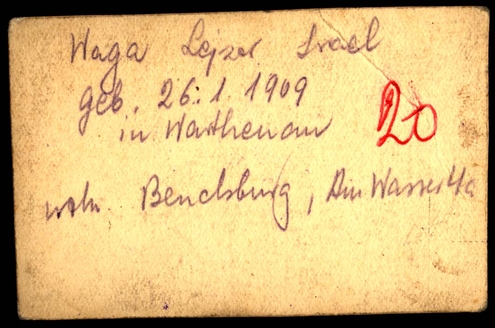 Waga Lejzer Israel
geb. 26.1.1909
in Warthenau
20
wohn. Bendsburg, Am Wasser 4a